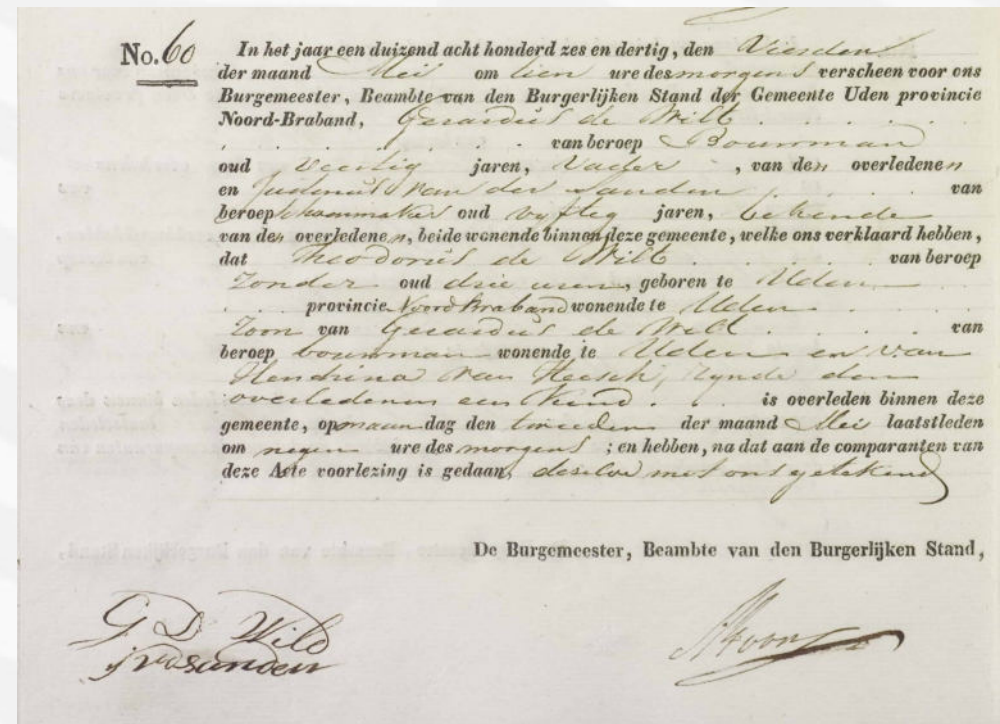 No. 60 In het jaar een duizend acht honderd zes en dertig, den Vierden
der maand Mei om tien ure des morgens verscheen voor ons
Burgemeester, Beambte van den Burgerlijken Stand der Gemeente Uden provincie
Noord-Braband, Gerardus de Wilt
van beroep Bouwman
oud Veertig jaren, Vader, van den overledenen
en van der Sanden van
beroep schoenmaker oud vyftig jaren, bekende
van den overledenen, beide wonende binnen deze gemeente, welke ons verklaard hebben,
dat Theodorus de Wilt van beroep
Zonder oud drie uren, geboren te Uden
provincie Noord Braband wonende te Uden
Zoon van Gerardus de Wilt van
beroep bouwman wonende te Uden en van
Hendrina van Heesch, zynde den
overledenen een Kind. is overleden binnen deze
gemeente, op maandag den tweeden der maand Mei laatstleden
om negen ure des morgens; en hebben, na dat aan de comparanten van
deze Acte voorlezing is gedaan, deselve met ons getekend
De Burgemeester, Beambte van den Burgerlijken Stand,
G D Wild
jvdsanden